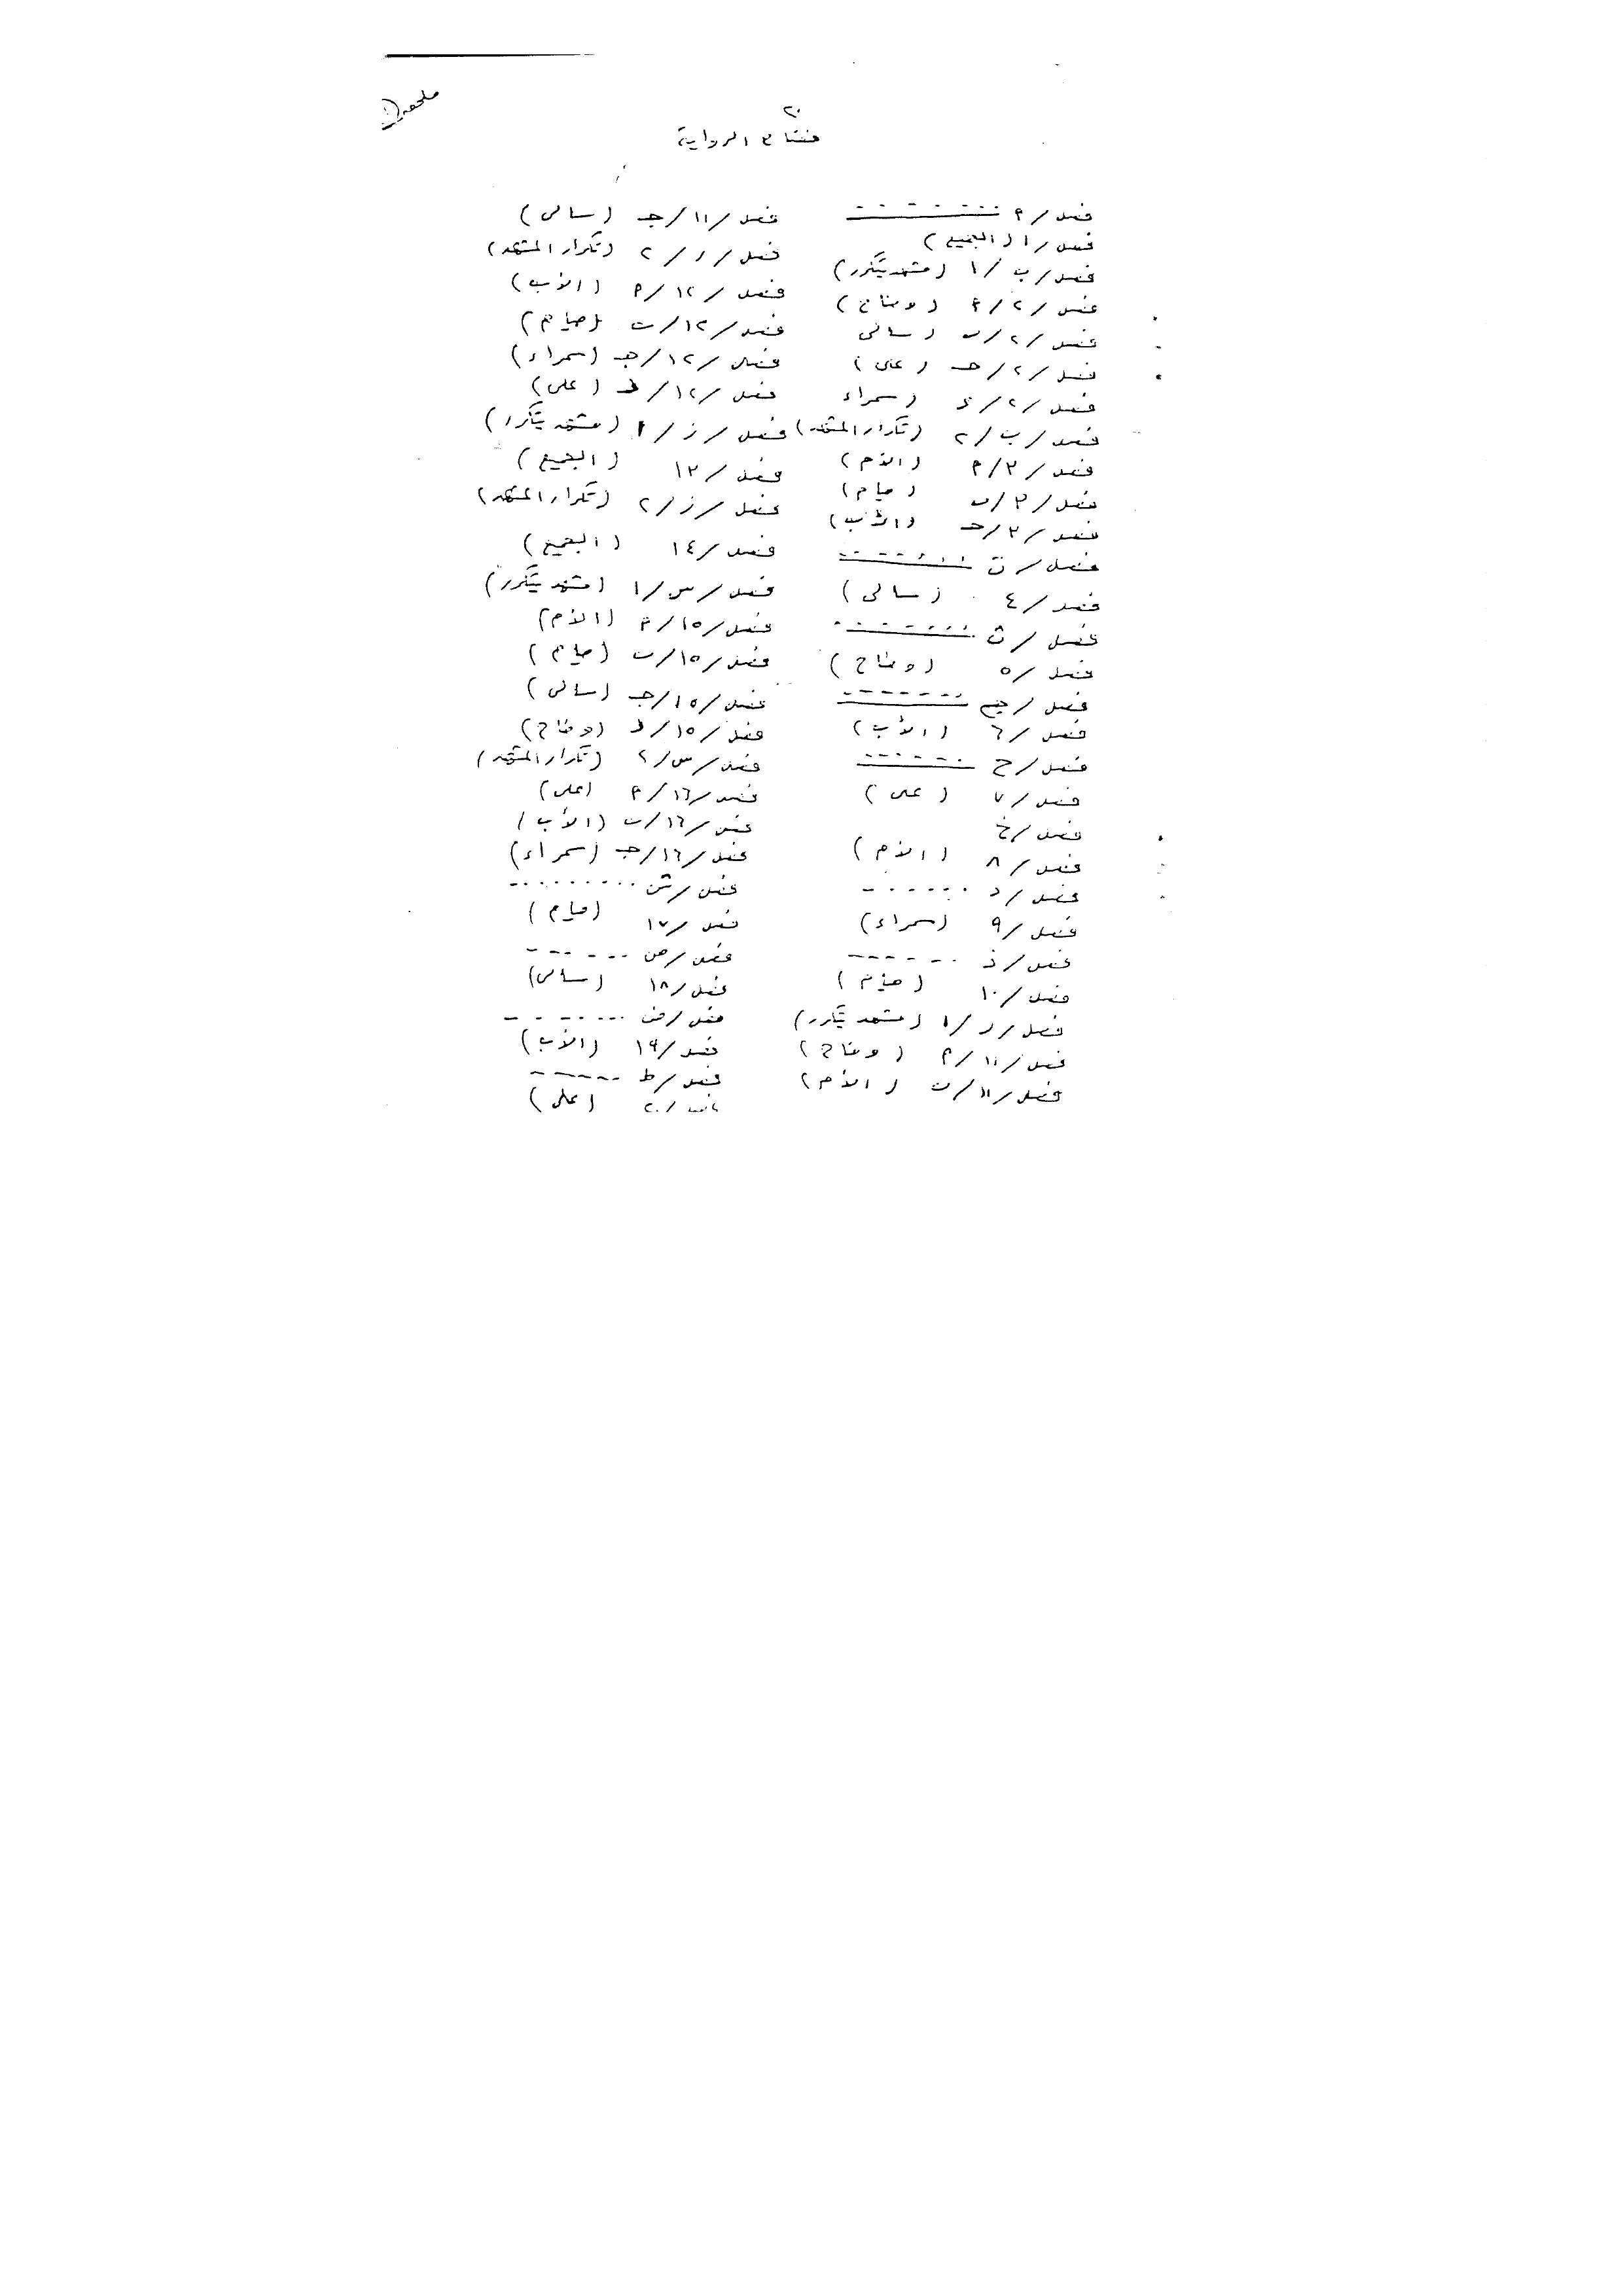 ملحق (١)
٢٠
مفتاح الرواية
فصل / أ
فصل / ١ (الجميع)
فصل / ب / ١ (مشهد يتكرر)
فصل / ٢ / أ (وضاح)
فصل / ٢ / ب (سالى
فصل / ٢ / جـ (على)
فصل / ٢ / د (سمراء
فصل / ب / ٢ (تكرار المشهد)
فصل / ٣ / أ (الأم)
فصل / ٣ / ب (صيام)
فصل / ٣ / جـ (الأب)
فصل / ت
فصل / ٤ (سالى)
فصل / ث
فصل / ٥ (وضاح)
فصل / جيم
فصل / ٦ (الأب)
فصل / ح
فصل / ٧ (على)
فصل / خ
فصل / ٨ (الأم)
فصل / د
فصل / ٩ (سمراء)
فصل / ذ
فصل / ١٠ (صيام)
فصل / ر / ١ (مشهد يتكرر)
فصل / ١١ / أ (وضاح)
فصل / ١١ / ب (الأم)
فصل / ١١ / جـ (سالى)
فصل / ر / ٢ (تكرار المشهد)
فصل / ١٢ / أ (الأب)
فصل / ١٢ / ب (صيام)
فصل / ١٢ / جـ (سمراء)
فصل / ١٢ / د (على)
فصل / ز / ١ (مشهد يتكرر)
فصل / ١٣ (الجميع)
فصل / ز / ٢ (تكرار المشهد)
فصل / ١٤ (الجميع)
فصل / س / ١ (مشهد يتكرر)
فصل / ١٥ / أ (الأم)
فصل / ١٥ / ب (صيام)
فصل / ١٥ / جـ (سالى)
فصل / ١٥ / د (وضاح)
فصل / س / ٢ (تكرار المشهد)
فصل / ١٦ / أ (على)
فصل / ١٦ / ب (الأب)
فصل / ١٦ / جـ (سمراء)
فصل / ش
فصل / ١٧ (صيام)
فصل / ص
فصل / ١٨ (سالى)
فصل / ض
فصل / ١٩ (الأب)
فصل / ط
فصل / ٢٠ (على)